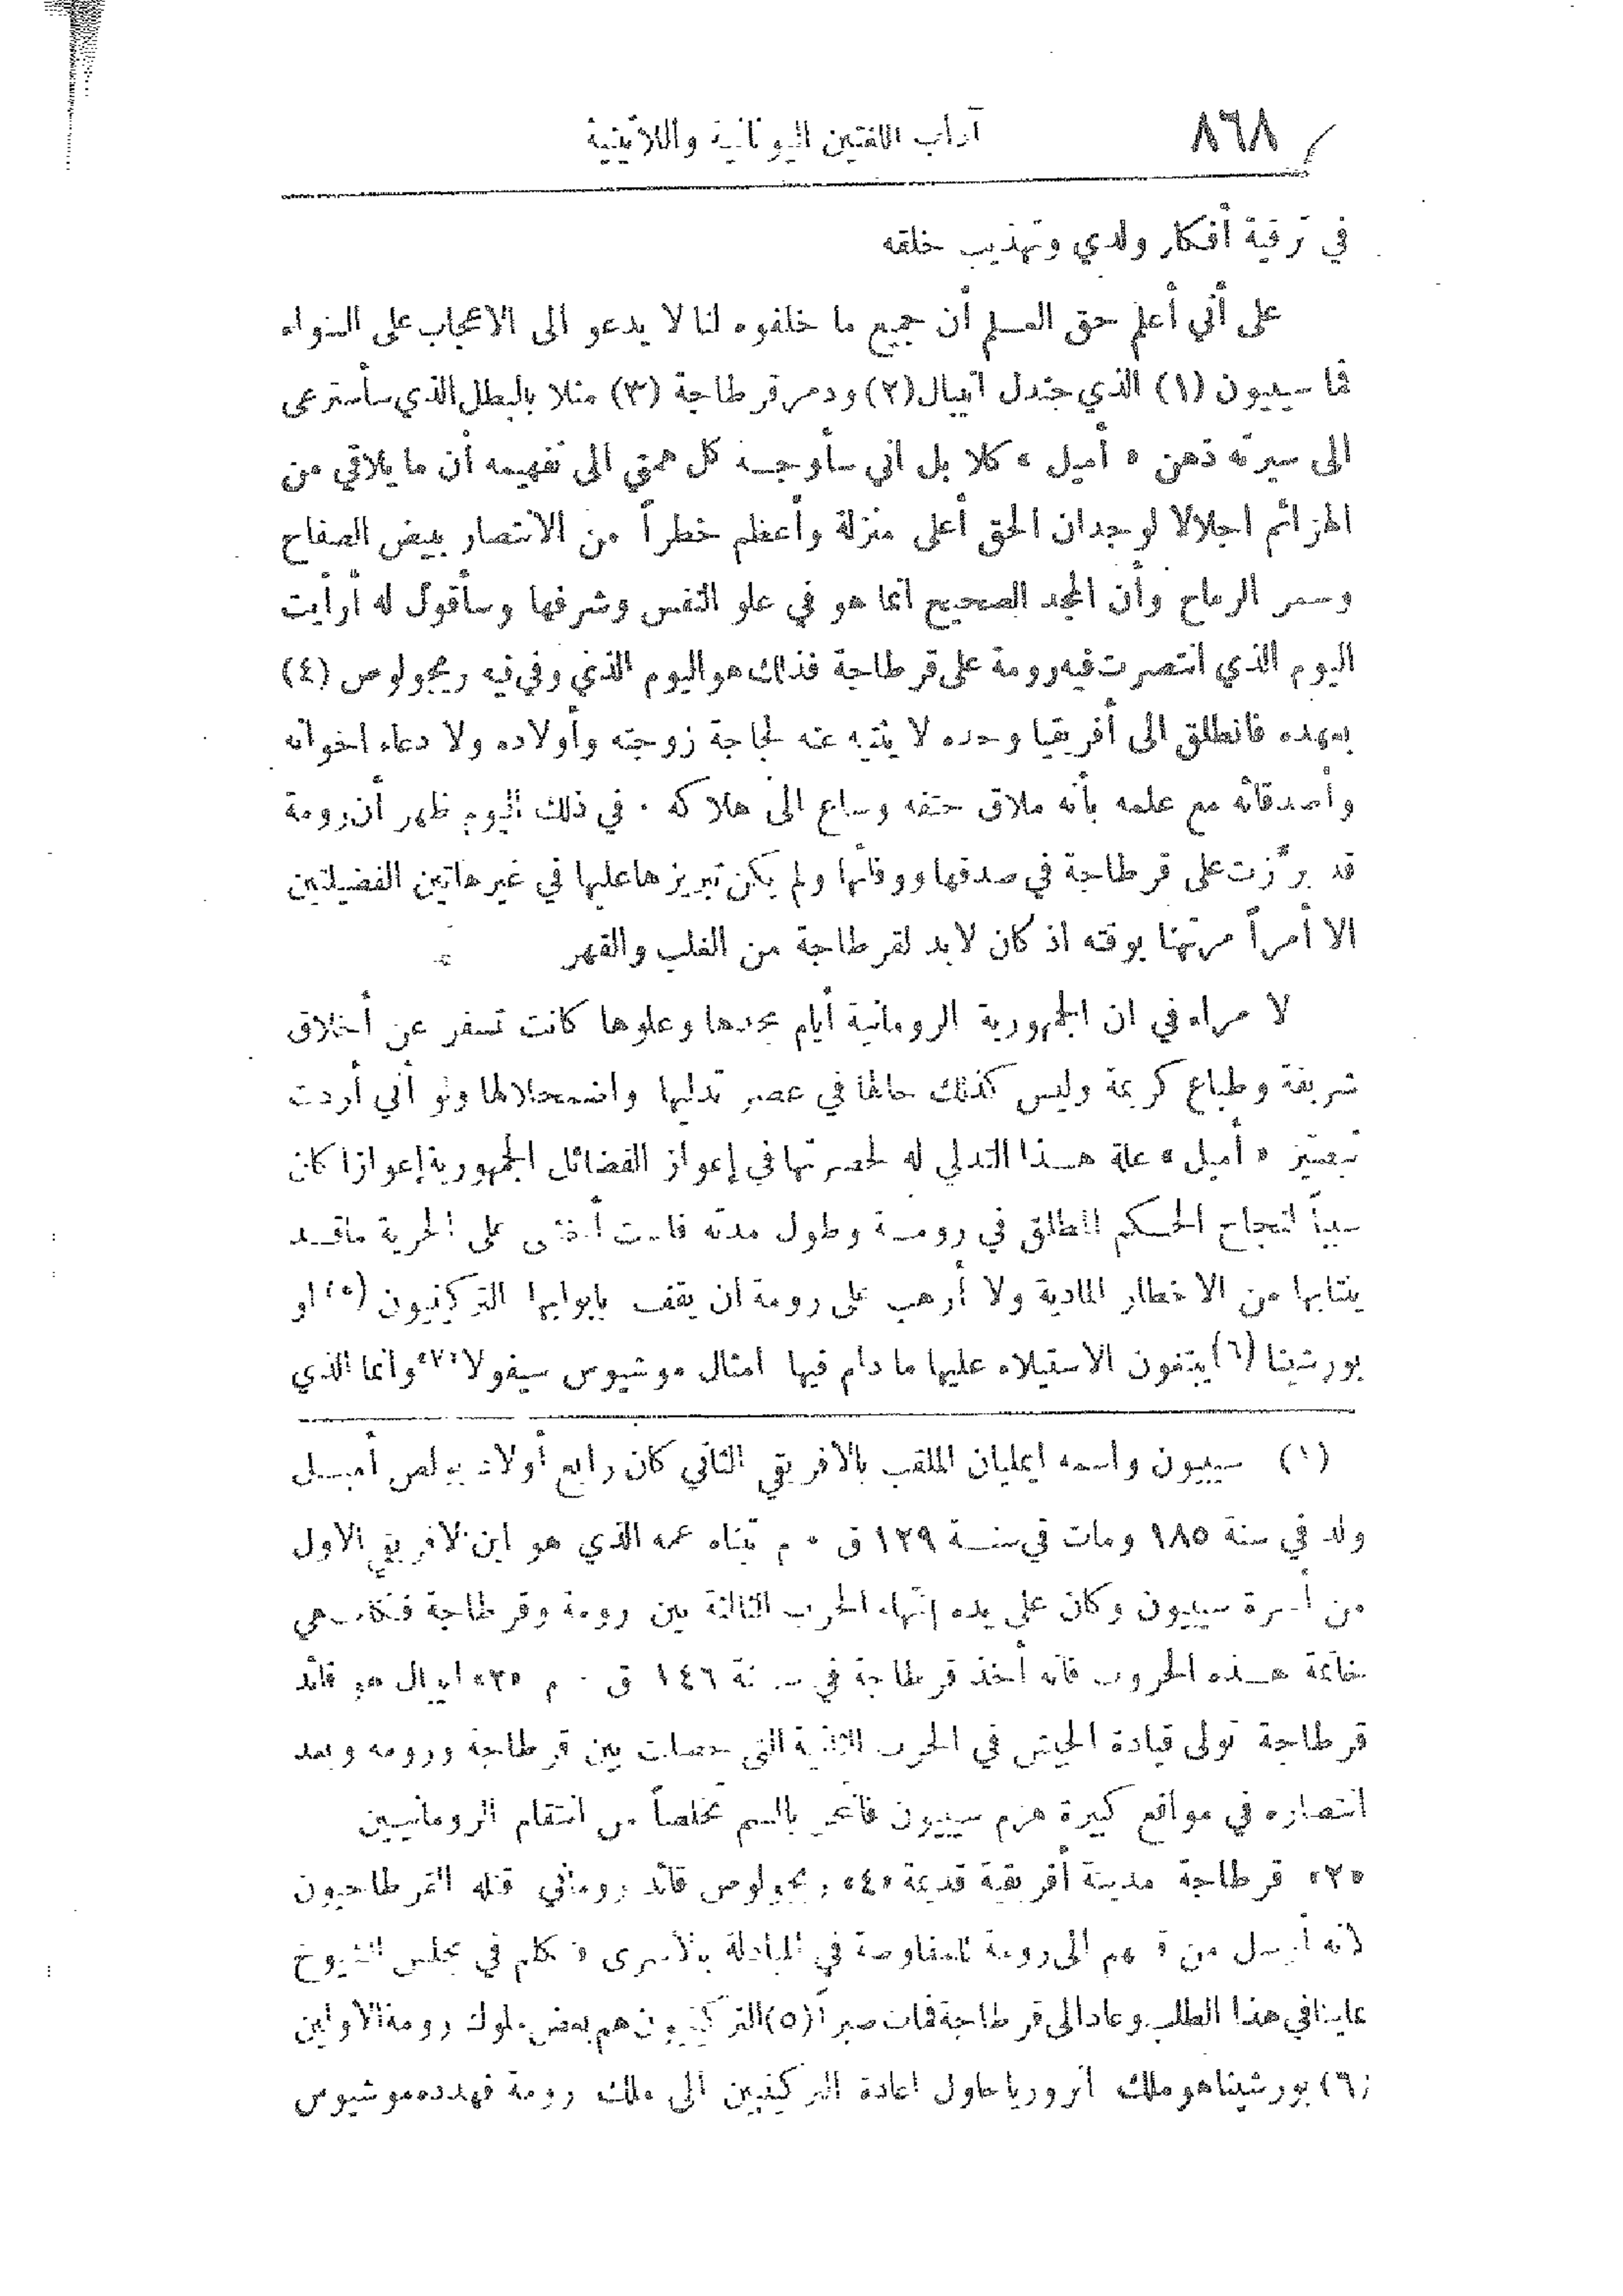 ٨٦٨ آداب اللغتين اليونانية واللاتينية
في ترقية أفكار ولدي وتهذيب خلقه
على أني أعلم حق العلم أن جميع ما خلفوه لنا لا يدعو الى الاعجاب على السواء
فما سيبيون (١) الذي جندل انيبال (٢) ودمر قرطاجة (٣) مثلا بالبطل الذي سأسترعى
الى سيرته ذهن « أميل » كلا بل اني سأوجه كل همتي الى تفهيمه أن ما يلاقي من
الهزائم اجلالا لوجدان الحق أعلى منزلة وأعظم خطراً من الانتصار ببيض الصفاح
وسمر الرماح وأن المجد الصحيح انما هو في علو النفس وشرفها وسأقول له أرأيت
اليوم الذي انتصرت فيه رومة على قرطاجة فذلك هو اليوم الذي وفى فيه ريجولوص (٤)
بعهده فانطلق الى أفريقيا وحده لا يثنيه عنه لجاجة زوجته وأولاده ولا دعاء اخوانه
وأصدقائه مع علمه بأنه ملاق حتفه وساع الى هلاكه ٠ في ذلك اليوم ظهر أن رومة
قد برَّزت على قرطاجة في صدقها ووفائها ولم يكن تبريزها عليها في غير هاتين الفضيلتين
الا أمراً مرتهنا بوقته اذ كان لابد لقرطاجة من الغلب والقهر
لا مراء في ان الجمهورية الرومانية أيام مجدها وعلوها كانت تسفر عن أخلاق
شريفة وطباع كريمة وليس كذلك حالها في عصر تدليها واضمحلالها ولو أني أردت
تبصير « أميل » علة هذا التدلي له لحصرتها في إعواز الفضائل الجمهورية إعوازا كان
سبباً لنجاح الحكم المطلق في رومة وطول مدته فلست أخشى على الحرية ماقد
ينتابها من الاخطار المادية ولا أرهب على رومة ان يقف بابوابها التركنيون (٥) او
بورشينا (٦) يبتغون الاستيلاء عليها ما دام فيها امثال موشيوس سيفولا «٧» وانما الذي
(١) سيبيون واسمه ايمليان الملقب بالافريقي الثاني كان رابع أولاد بولص أميل
ولد في سنة ١٨٥ ومات في سنة ١٢٩ ق ٠ م تبناه عمه الذي هو ابن الافريقي الاول
من أسرة سيبيون وكان على يده إنتهاء الحرب الثالثة بين رومة وقرطاجة فكانت هي
خاتمة هذه الحروب فانه أخذ قرطاجة في سنة ١٤٦ ق ٠ م «٢» انيبال هو قائد
قرطاجة تولى قيادة الجيش في الحرب الثانية التي حصلت بين قرطاجة ورومه وبعد
انتصاره في مواقع كبيرة هزم سيبيون فانتحر بالسم تخلصاً من انتقام الرومانيين
«٣» قرطاجة مدينة أفريقية قديمة «٤» ريجولوص قائد روماني قتله القرطاجيون
لانه أرسل من قبلهم الى رومة للمفاوضة في المبادلة بالاسرى فتكلم في مجلس الشيوخ
علينا في هذا الطلب وعاد الى قرطاجة فمات صبراً (٥) التركنيون هم بعض ملوك رومة الأولين
(٦) بورشينا هو ملك اترورياحاول اعادة التركنيين الى ملك رومة فهدده موشيوس